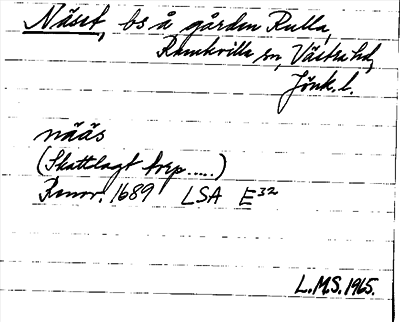 Näset, bs å gården Rulla,
Ramkvilla sn, Västra hd,
Jönk. l.
nääs
(Skattlagt torp.....)
Renov. 1689 LSA E32
L.M.S. 1965.